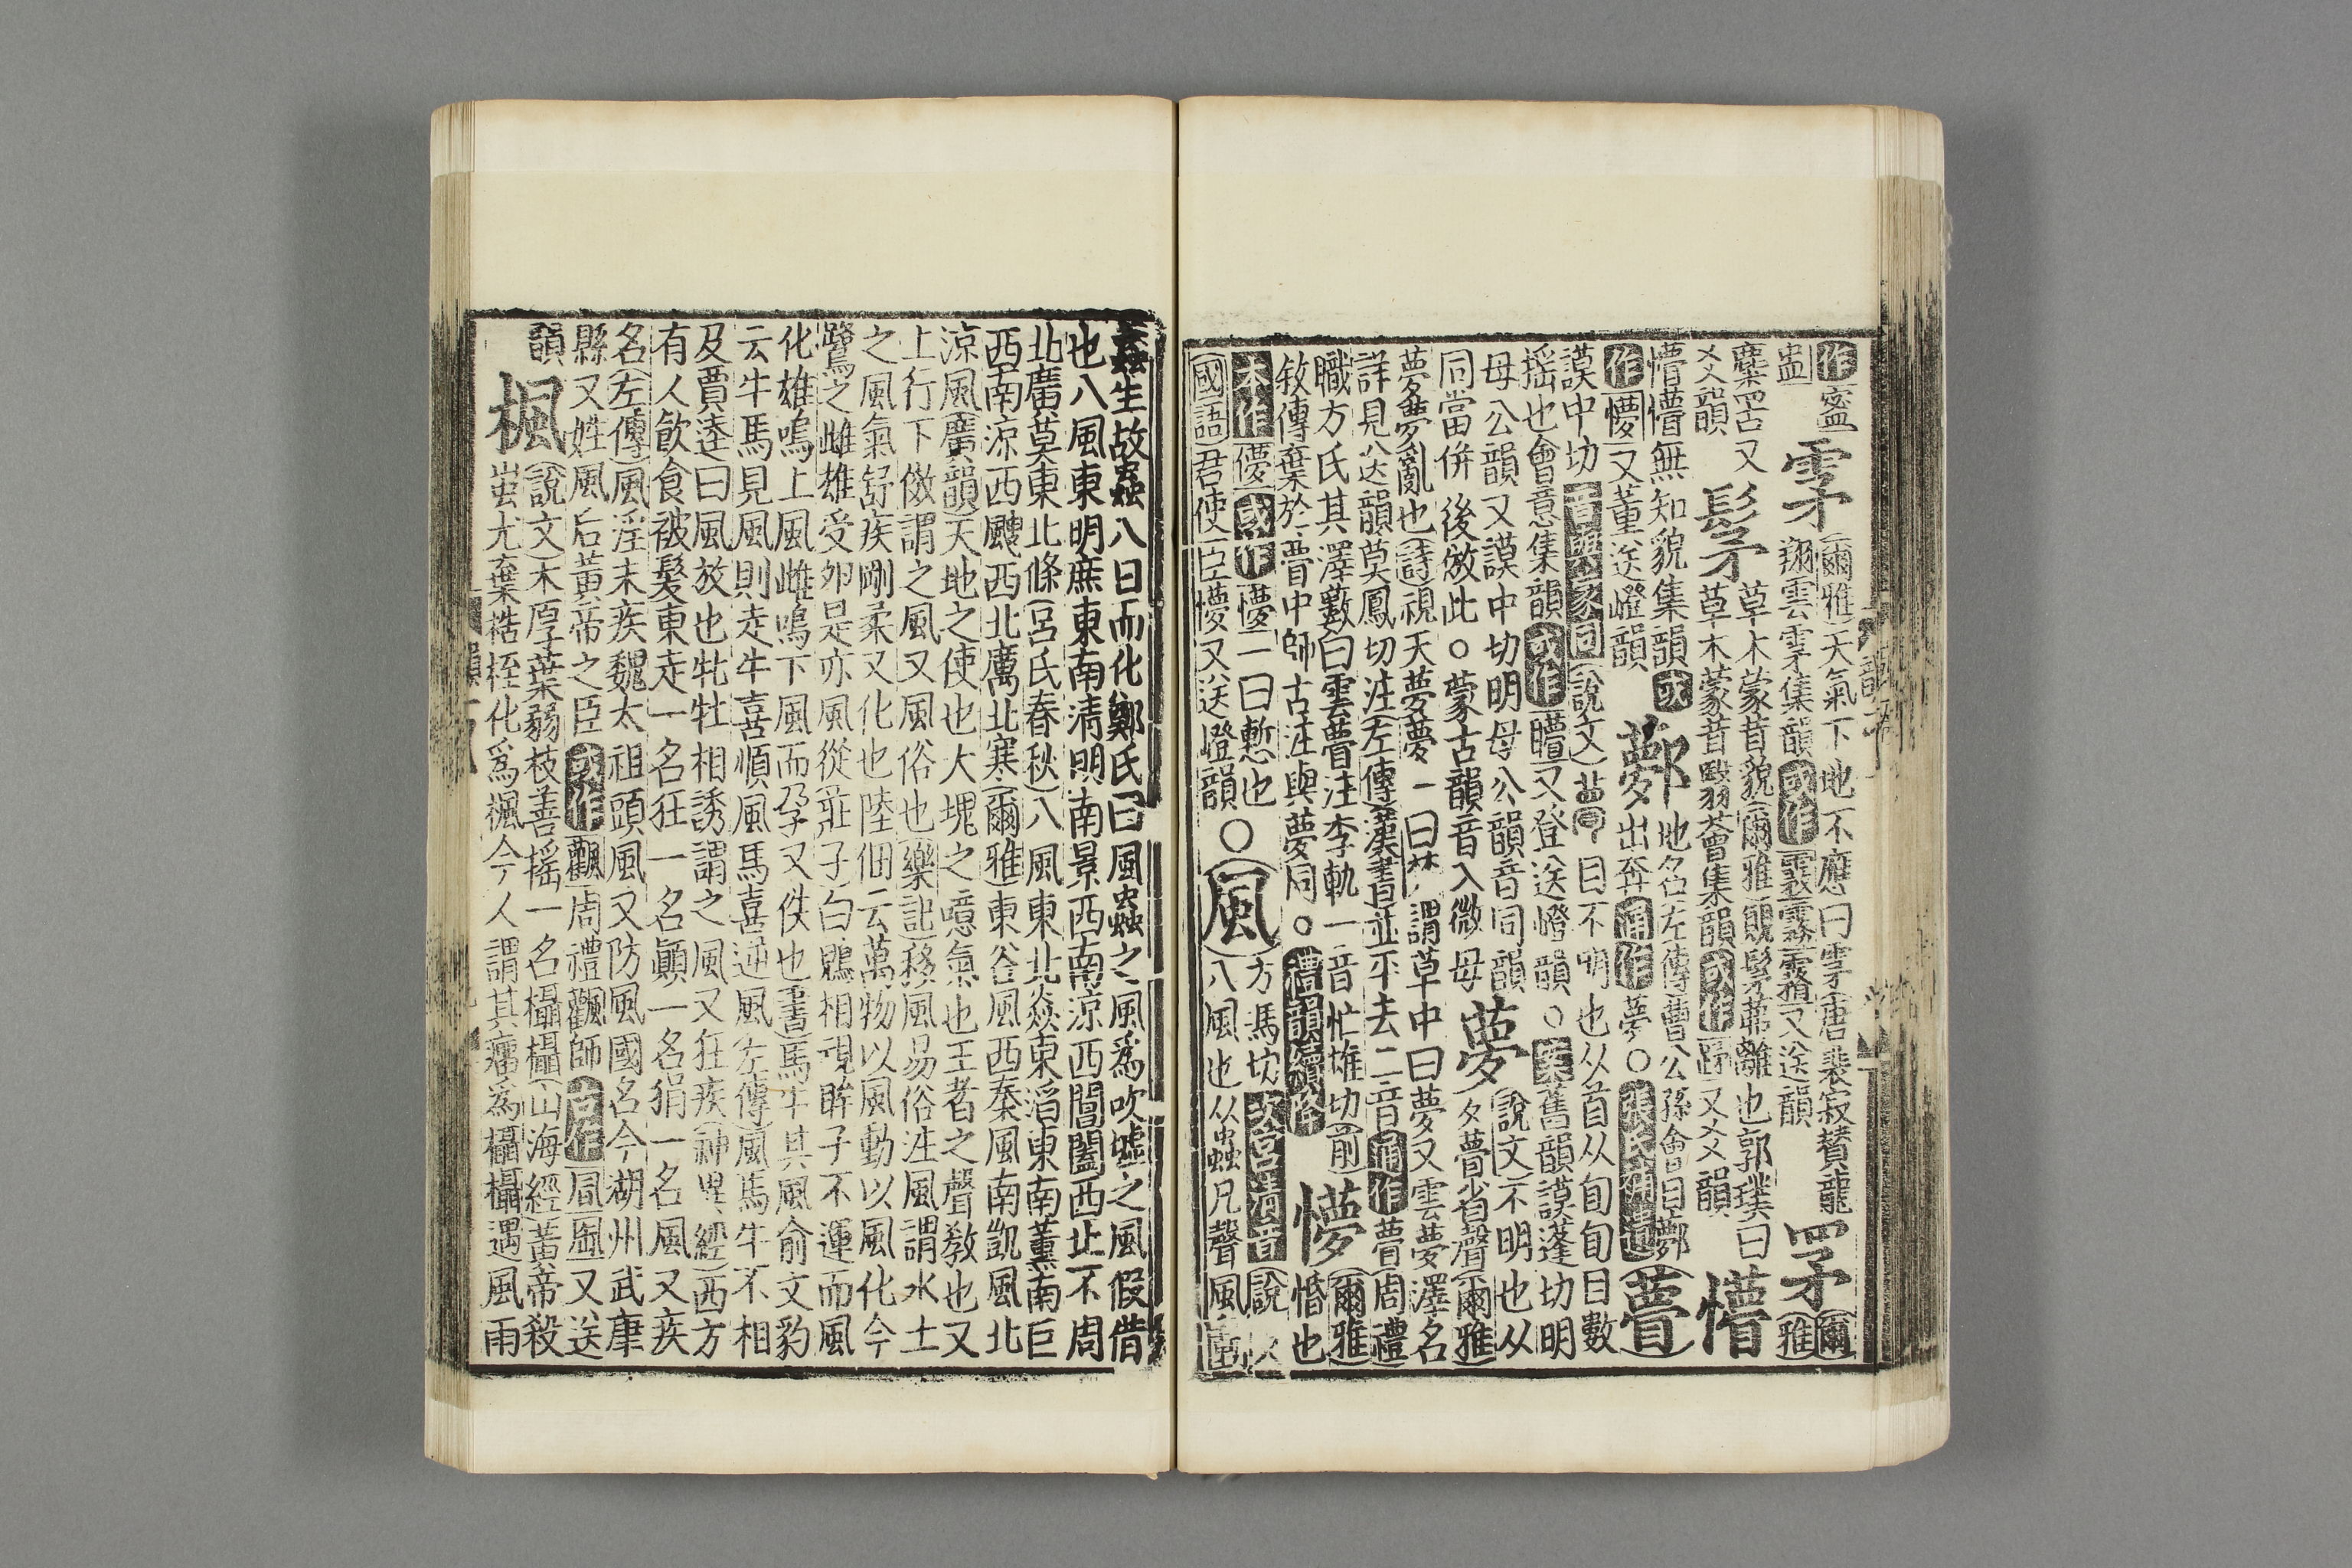 作䀄
盅
雺
爾雅天氣下地不應曰雺唐裴寂賛龍
翔雲雺集韻或作霿霧䨩又送韻
罞
爾
雅
麋罟又
爻韻
髳
草木蒙昔貌爾雅覭髳茀離也郭璞曰
草木蒙昔翳薈集韻或作
又爻韻
懵
懵懵無知貌集韻或
作懜又董送嶝韻
鄸
地名左傳曹公孫會自鄸
出奔通作夢〇張氏補遺
瞢
謨中切
説文
目不明也从苜从旬旬目數
搖也會意集韻或作矒又登送嶝韻〇案舊韻謨蓬切明
母公韻又謨中切明母公韻音同韻
同當併後倣此〇蒙古韻音入微母
夢
説文不明也从
夕瞢省聲爾雅
夢夢亂也詩視天夢夢一曰
謂草中曰夢又雲夢澤名
詳見送韻莫鳳切注左傳漢書並平去二音通作瞢周禮
職方氏其澤藪曰雲瞢注李軌一音忙雄切前
敘傳棄於瞢中師古注與夢同〇禮韻續降
懜
爾雅
惛也
本作儚或作懜一曰慙也
國語君使臣懜又送嶝韻〇
風
方馮切
説文
八風也从蟲凡聲風動
蟲生故蟲八日而化鄭氏曰風蟲之風爲吹噓之風假借
也八風東明庶東南清明南景西南涼西閶闔西北不周
北廣莫東北條呂氏春秋八風東北炎東滔東南薰南巨
西南涼西飂西北厲北寒爾雅東谷風西泰風南凱風北
涼風廣韻天地之使也大塊之噫氣也王者之聲敎也又
上行下傚謂之風又風俗也樂記移風易俗注風謂水土
之風氣舒疾剛柔又化也陸佃云萬物以風動以風化今
鷺之雌雄受卵是亦風從莊子白鶂相視眸子不運而風
化雄鳴上風雌鳴下風而孕又佚也書馬牛其風俞文豹
云牛馬見風則走牛喜順風馬喜逆風左傳風馬牛不相
及賈逵曰風放也牝牡相誘謂之風又狂疾神異經西方
有人飮食被髮東走一名狂一名顚一名狷一名風又疾
名左傳風淫末疾魏太祖頭風又防風國名今湖州武康
縣又姓風后黄帝之臣或作飌周禮飌師古作凬凮又送
韻
楓
説文木厚葉弱枝善搖一名欇欇山海經黄帝殺
蚩尤棄桎梏化爲楓今人謂其癭爲欇欇遇風雨